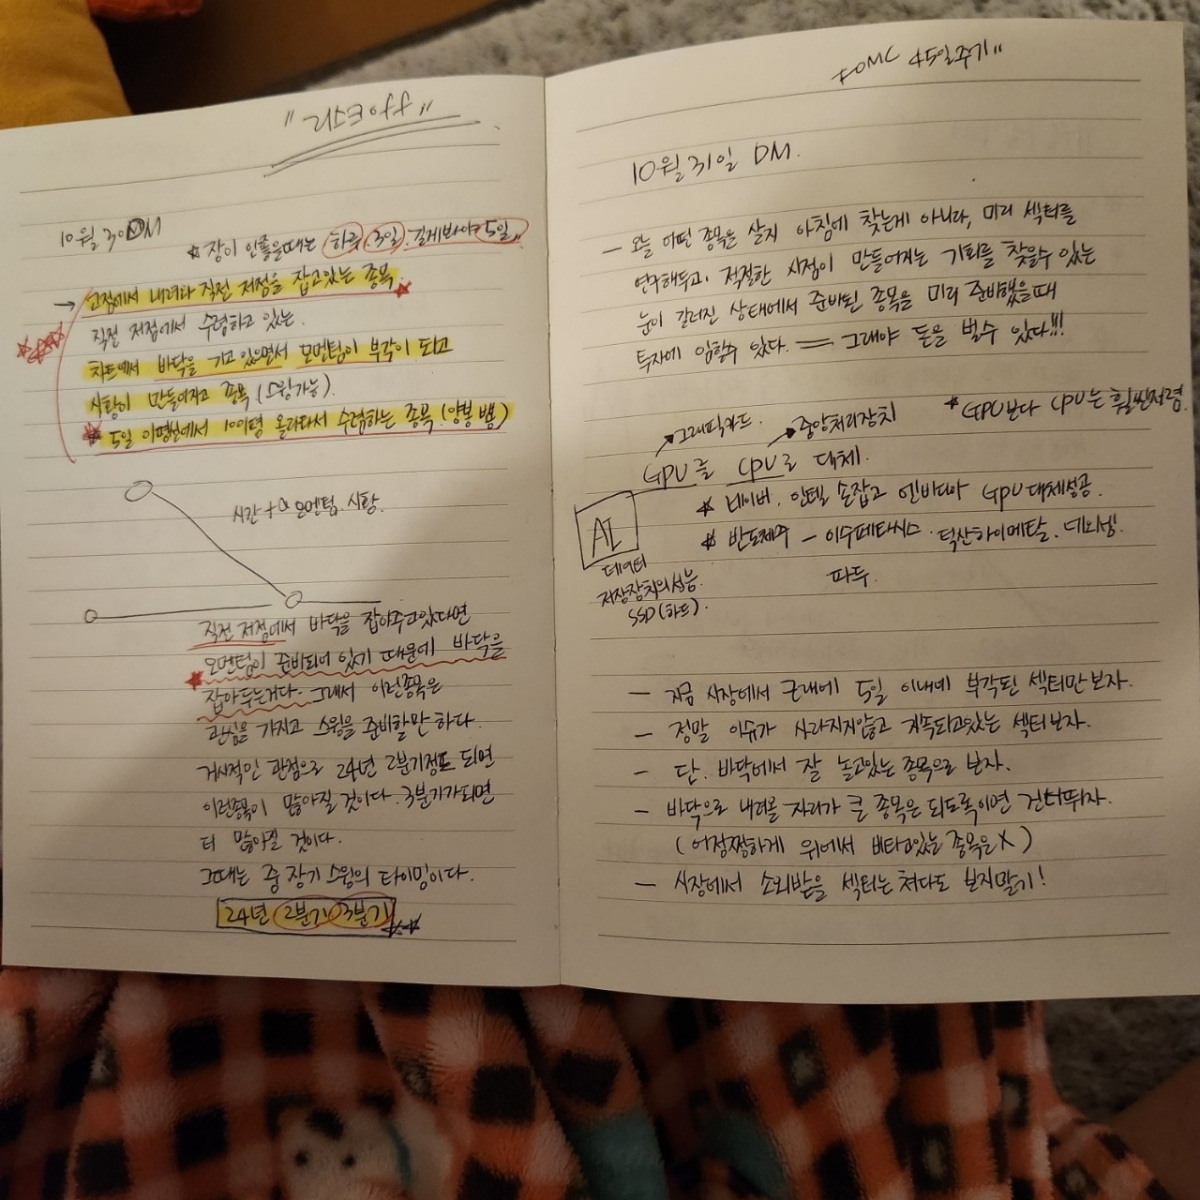 "리스크 off"
10월 30 DM
* 장이 안좋을때는 하루, 3일. 길게봐야 5일"
→ 고점에서 내려와 직전 저점을 잡고있는 종목.
직전 저점에서 수렴하고 있는.
차트에서 바닥을 기고 있으면서 모멘텀이 부각이 되고
시황이 만들어지고 종목 (스윙가능).
* 5일 이평선에서 10이평 올라타서 수렴하는 종목. (양봉 뱅)
시간 + a 모멘텀. 시황.
직전 저점에서 바닥을 잡아주고있다면
모멘텀이 준비되어 있기 때문에 바닥을
잡아두는거다. 그래서 이런종목은
관심을 가지고 스윙을 준비할만 하다.
거시적인 관점으로 24년 2분기정도 되면
이런종목이 많아질 것이다. 3분기가되면
더 많아질 것이다.
그때는 중 장기 스윙의 타이밍이다.
24년 2분기 3분기
FOMC 45일주기"
10월 31일 DM.
— 오늘 어떤 종목을 살지 아침에 찾는게 아니라, 미리 섹터를
연구해두고. 적절한 시점이 만들어지는 기회를 찾을수 있는
눈이 길러진 상태에서 준비된 종목을 미리 준비했을때
투자에 임할수 있다. = 그래야 돈을 벌수 있다!!!
* GPU보다 CPU는 훨씬저렴.
→ 그래픽카드. → 중앙처리장치
GPU를 CPU로 대체.
AI
* 네이버. 인텔 손잡고 엔비디아 GPU 대체성공.
* 반도체주 — 이수페타시스. 덕산하이메탈.
파두.
데이터
저장장치의성능.
SSD(하드).
— 지금 시장에서 근래에 5일 이내에 부각된 섹터만보자.
— 정말 이슈가 사라지지않고 지속되고있는 섹터보자.
— 단. 바닥에서 잘 놀고있는 종목으로 보자.
— 바닥으로 내려올 자리가 큰 종목은 되도록이면 건너뛰자.
(어정쩡하게 위에서 버티고있는 종목은 X)
— 시장에서 소외받을 섹터는 쳐다도 보지말기!